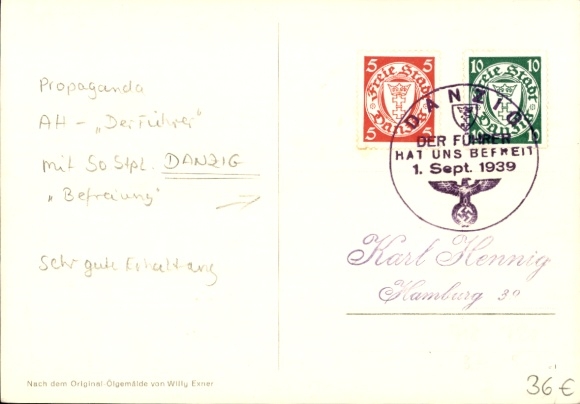 Propaganda
AH – „Der Führer"
mit So Stpl. DANZIG
„Befreiung"
Sehr gute Erhaltung
Nach dem Original-Ölgemälde von Willy Exner
5 5
Freie Stadt
Danzig
5 5
10 10
Freie Stadt
Danzig
10
DANZIG
DER FÜHRER
HAT UNS BEFREIT
1. Sept. 1939
Karl Hennig
Hamburg 39
36 €